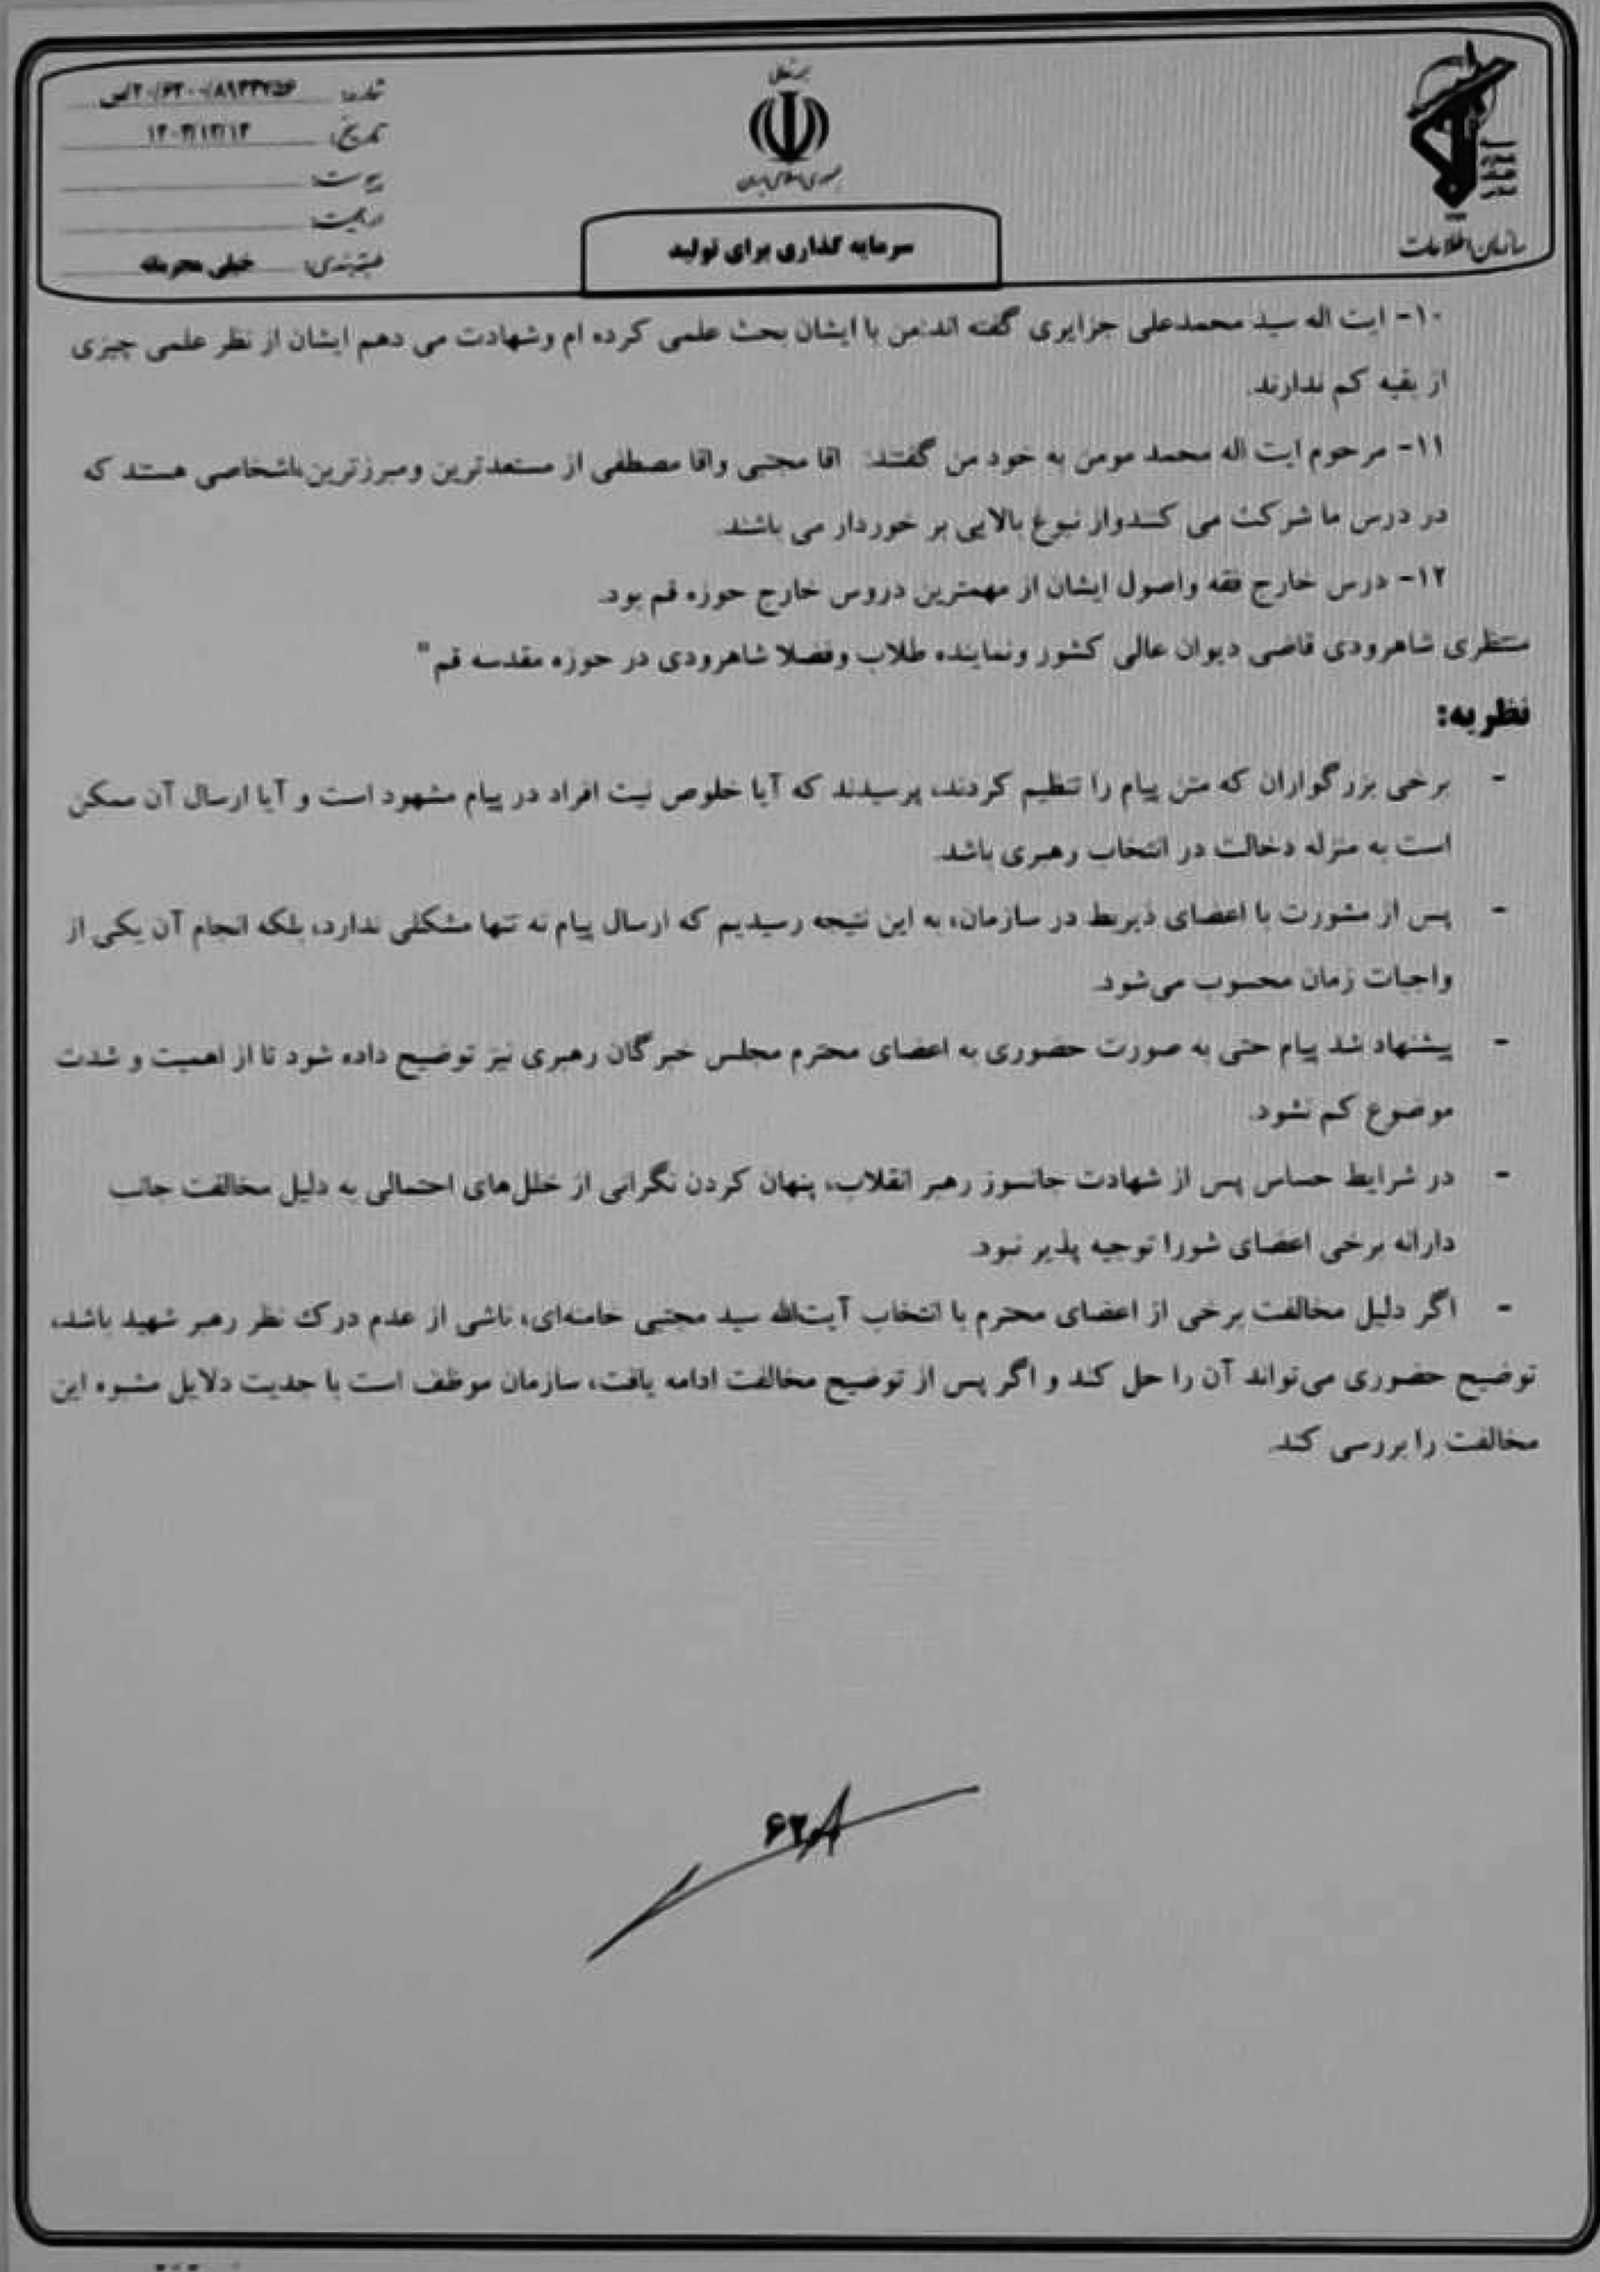 جمهوری اسلامی ایران
سازمان اطلاعات
شماره:
تاریخ:
پیوست:
طبقه‌بندی: خیلی محرمانه
سرمایه گذاری برای تولید
۱۰- ایت اله سید محمدعلی جزایری گفته اند:من با ایشان بحث علمی کرده ام وشهادت می دهم ایشان از نظر علمی چیزی
از بقیه کم ندارند.
۱۱- مرحوم ایت اله محمد مومن به خود من گفتند: اقا مجتبی واقا مصطفی از مستعدترین ومبرزترین اشخاصی هستند که
در درس ما شرکت می کنندواز نبوغ بالایی بر خوردار می باشند.
۱۲- درس خارج فقه واصول ایشان از مهمترین دروس خارج حوزه قم بود.
منتظری شاهرودی قاضی دیوان عالی کشور ونماینده طلاب وفضلا شاهرودی در حوزه مقدسه قم"
نظریه:
- برخی بزرگواران که متن پیام را تنظیم کردند، پرسیدند که آیا خلوص نیت افراد در پیام مشهود است و آیا ارسال آن ممکن
است به منزله دخالت در انتخاب رهبری باشد.
- پس از مشورت با اعضای ذیربط در سازمان، به این نتیجه رسیدیم که ارسال پیام نه تنها مشکلی ندارد، بلکه انجام آن یکی از
واجبات زمان محسوب می‌شود.
- پیشنهاد شد پیام حتی به صورت حضوری به اعضای محترم مجلس خبرگان رهبری نیز توضیح داده شود تا از اهمیت و شدت
موضوع کم نشود.
- در شرایط حساس پس از شهادت جانسوز رهبر انقلاب، پنهان کردن نگرانی از خلل‌های احتمالی به دلیل مخالفت جانب
دارانه برخی اعضای شورا توجیه پذیر نبود.
- اگر دلیل مخالفت برخی از اعضای محترم با انتخاب آیت‌الله سید مجتبی خامنه‌ای، ناشی از عدم درک نظر رهبر شهید باشد،
توضیح حضوری می‌تواند آن را حل کند و اگر پس از توضیح مخالفت ادامه یافت، سازمان موظف است با جدیت دلایل مشبوه این
مخالفت را بررسی کند.